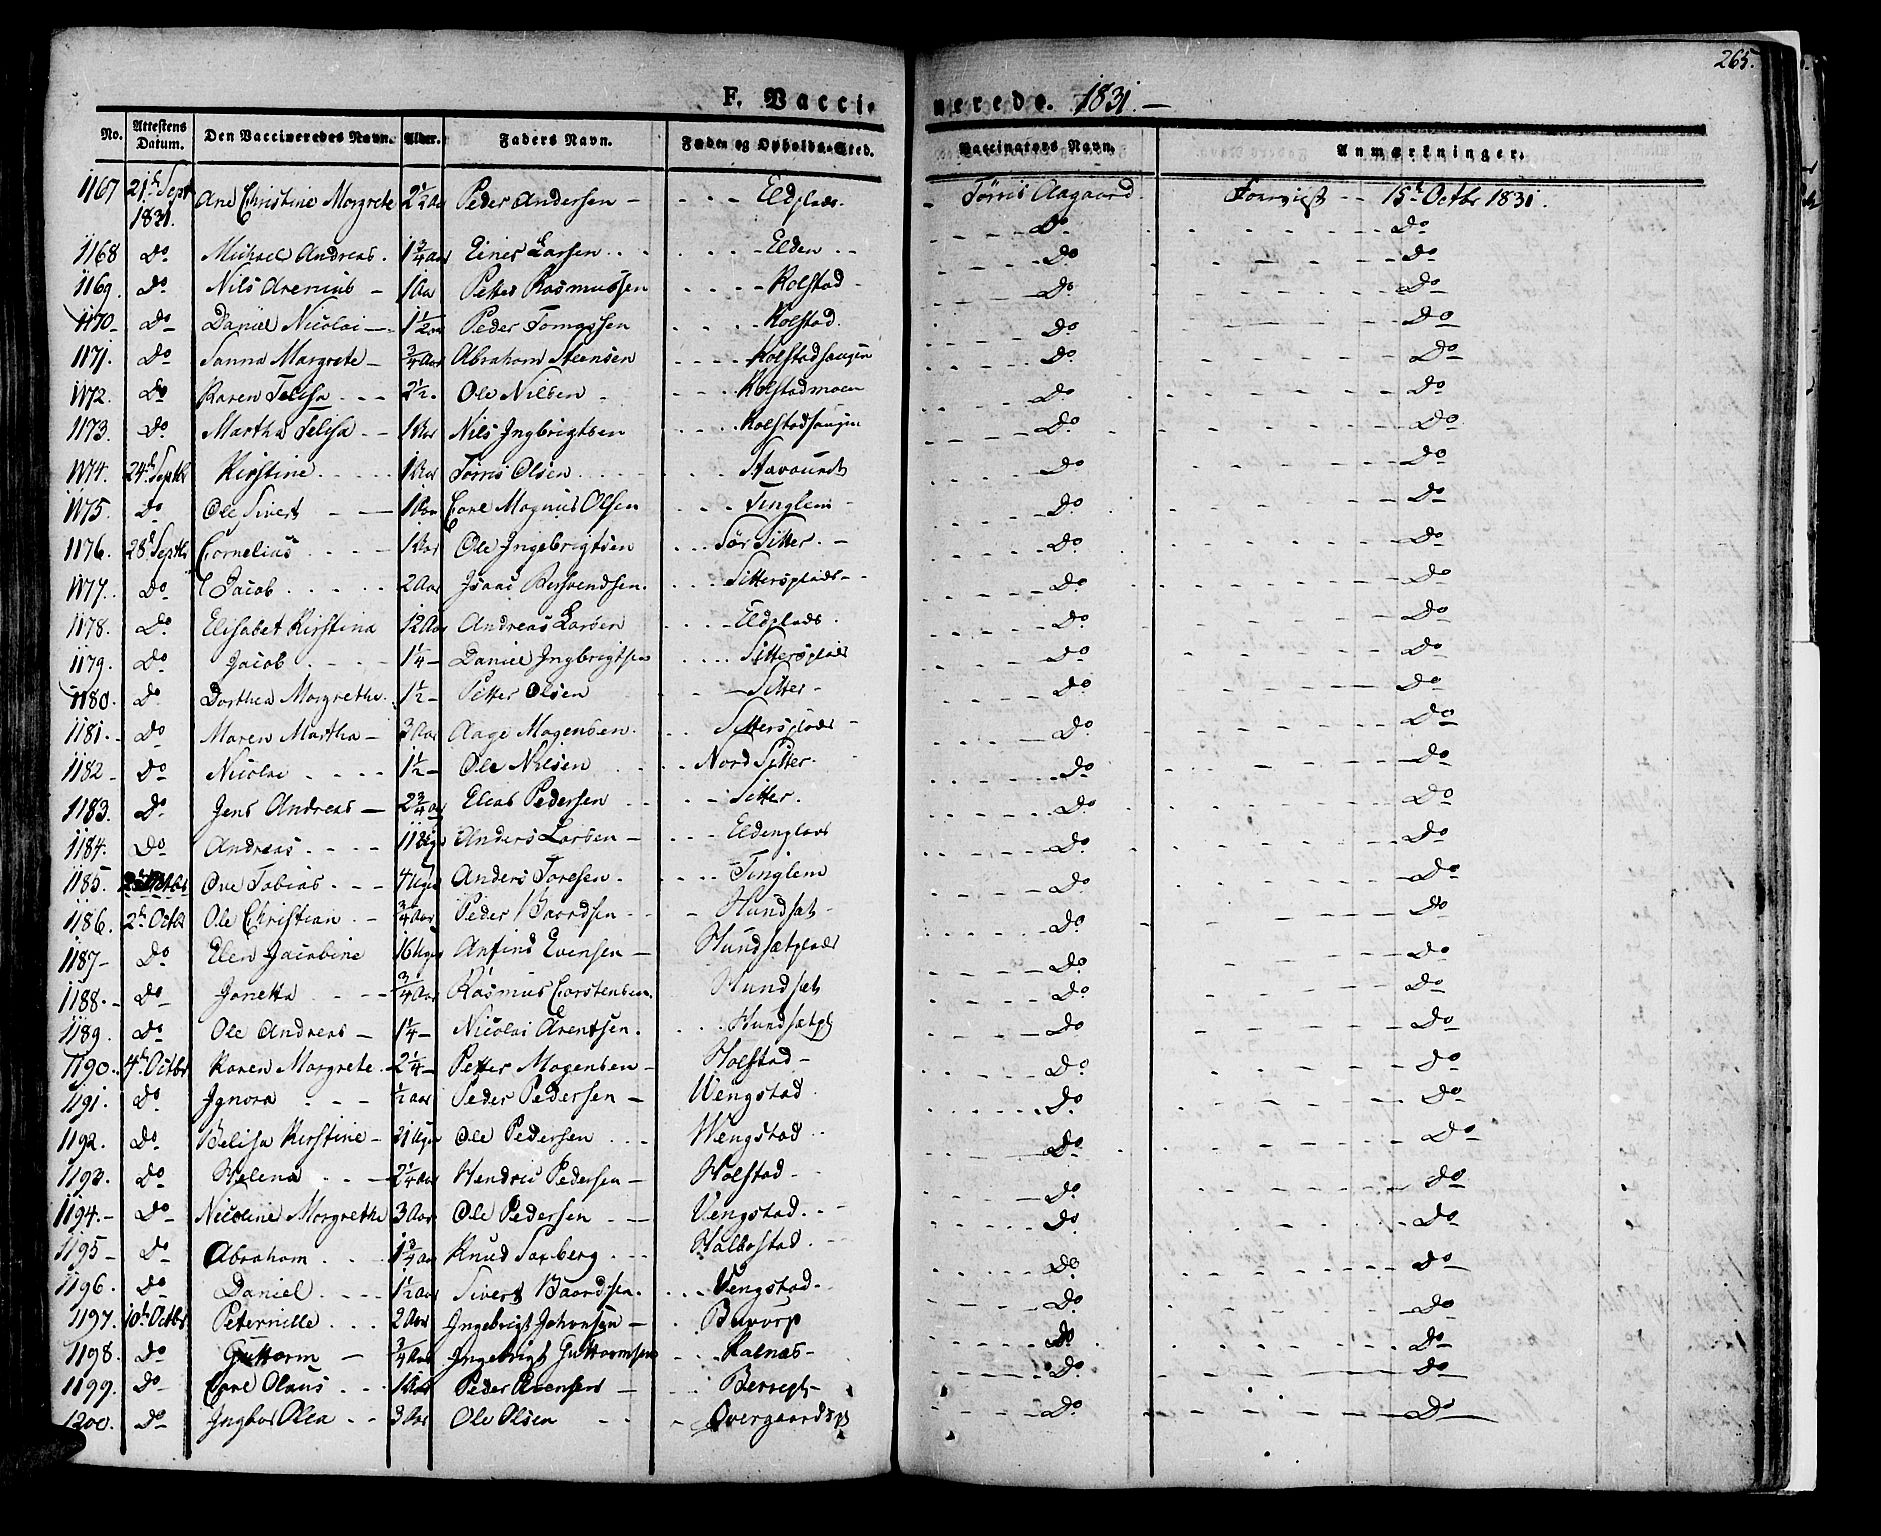 265.
F. Vaccinerede. 1831.
No. Attestens Datum. Den Vaccineredes Navn. Alder. Faders Navn. Føde- og Opholds-Sted. Vaccinators Navn. Anmærkninger.
1167 21de Sept 1831. Ane Christine Margrete 2½ Aar Peder Andersen Eldplads. Tørris Aagaard. 15de Octbr 1831.
1168 Do Michael Andreas. 1¾ Aar Einer Larsen Elden Do Do
1169. Do Nils Arenius 1 Aar Petter Rasmussen Kolstad Do Do
1170 Do Daniel Nicolai 1½ Aar Peder Tomassen Kolstad. Do Do
1171. Do Sanna Margrete ¾ Aar Abraham Steensen Kolstadhaugen Do Do
1172. Do Karen Felisa 2½ Ole Nilsen Kolstadmoen Do Do
1173. Do Martha Felisa 1 Aar Nils Ingbrigtsen Kolstadhaugen Do Do
1174. 24de Septbr Kirstine 1 Aar Tørris Olsen Do Do
1175. Do Ole Sivert 1 Aar Carl Magnus Olsen Tinglem Do Do
1176. 28de Septbr Cornelius 1 Aar Ole Ingebrigtsen Sør Sitter. Do Do
1177. Do Jacob 2 Aar Isaac Bersvendsen. Sittersplads Do Do
1178. Do Elisabet Kirstina 12 Aar Andreas Larsen Eldplads. Do Do
1179. Do Jacob 1¼ Daniel Ingbrigtsen Sittersplads Do Do
1180. Do Dorthea Margrethe. 1½ Petter Olsen Sitter Do Do
1181. Do Maren Martha 3 Aar Aage Mogensen. Sittersplads Do Do
1182 Do Nicolai 1½ Ole Nilsen Nord Sitter. Do Do
1183. Do Jens Andreas 2¾ Aar Elias Pedersen Sitter. Do Do
1184. Do Andreas 11 Uger Anders Larsen Eldenplads Do Do
1185. Ove Tobias 4 Uger Anders Toresen. Tinglem Do Do
1186. 2de Octbr Ole Christian ¾ Aar Peder Baardsen Hundsæt Do Do
1187 Do Elen Jacobine 16 Uger Anfind Evensen Hundsætplads Do Do
1188. Do Jonetta ¾ Aar Rasmus Carstensen. Hundsæt Do Do
1189. Do Ole Andreas 1¼ Nicolai Arentsen. Hundsætpl Do Do
1190. 4de Octbr Karen Margrete 2¼ Petter Mogensen Holstad Do Do
1191. Do Ignora ½ Aar Peder Pedersen Wengstad Do Do
1192. Do Belisa Kirstine 21 Uger Ole Pedersen Wengstad Do Do
1193. Do Helena 2¼ Aar Hendric Pedersen Holstad Do Do
1194. Do Nicoline Margrethe 3 Aar Ole Pedersen Vengstad Do Do
1195 Do Abraham 1¾ Aar Knud Saxberg Halbostad Do Do
1196. Do Daniel 1½ Aar Sivert Baardsen. Vengstad Do Do
1197. 10de Octbr Peternille 2 Aar Ingebrigt Johansen Buvarp Do Do
1198. Do Guttorm ¾ Aar Ingebrigt Guttormsen Kalnæs Do Do
1199. Do Carl Olaus 1 Aar Peder Evensen Do Do
1200. Do Ingbor Olea 3 Aar Ole Olsen Overgaardspl Do Do